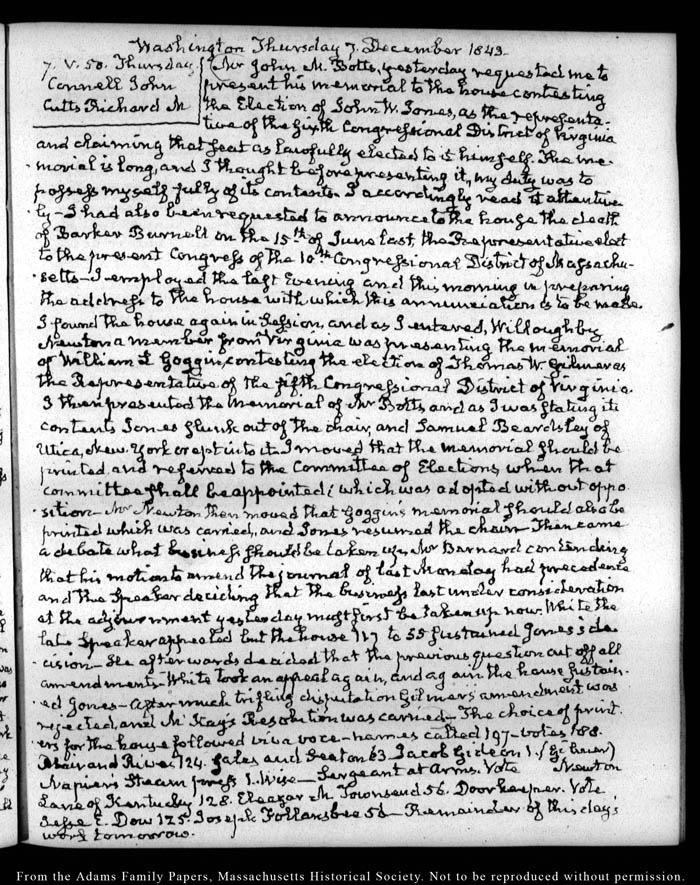 Washington Thursday 7. December 1843
7. V. 50. Thursday
Connell John
Cutts Richard M
Mr John M. Botts, yesterday requested me to
present his memorial to the house contesting
the Election of John W. Jones, as the representa-
tive of the sixth Congressional District of Virginia
and claiming that seat as lawfully elected to it himself. The me-
morial is long, and I thought before presenting it, my duty was to
possess myself fully of its contents. I accordingly read it attentive-
ly— I had also been requested to announce to the house the death
of Barker Burnell on the 15th of June last, the Representative elect
to the present Congress of the 10th Congressional District of Massachu-
setts— I employed the last Evening and this morning in preparing
the address to the house with which this annunciation is to be made
I found the house again in Session, and as I entered, Willoughby
Newton a member from Virginia was presenting the memorial
of William L Goggin, contesting the election of Thomas W. Gilmer as
the Representative of the fifth Congressional District of Virginia.
I then presented the Memorial of Mr Botts, and as I was stating its
contents Jones slunk out of the chair, and Samuel Beardsley of
Utica, New York crept into it. I moved that the memorial should be
printed and referred to the Committee of Elections, when that
committee shall be appointed; which was adopted without oppo-
sition— Mr Newton then moved that Goggin's memorial should also be
printed which was carried, and Jones resumed the chair— Then came
a debate what business should be taken up— Mr Barnard contending
that his motion to amend the journal of last Monday had precedence
and the Speaker deciding that the business last under consideration
at the adjournment yesterday must first be taken up now. White the
late Speaker appealed but the house 117 to 55 sustained Jones's de-
cision— He afterwards decided that the previous question cut off all
amendments— White took an appeal again, and again the house sustain-
ed Jones— After much trifling disputation Gilmer's amendment was
rejected, and McKay's Resolution was carried— The choice of print-
ers for the house followed viva voce— names called 197— votes 188.
Blair and Rives 124. Gales and Seaton 63 Jacob Gideon 1.
Napier's Steam press 1. Wise— Sergeant at Arms. Vote Newton
Lane of Kentucky 128. Eleazar M. Townsend 56. Doorkeeper. Vote
Jesse E. Dow 125. Joseph Follansbee 56— Remainder of this day's
work tomorrow.
From the Adams Family Papers, Massachusetts Historical Society. Not to be reproduced without permission.